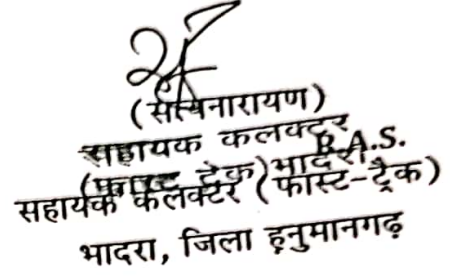 (सत्यनारायण)
सहायक कलक्टर R.A.S.
(फास्ट ट्रेक) भादरा
सहायक कलक्टर (फास्ट-ट्रैक)
भादरा, जिला हनुमानगढ़